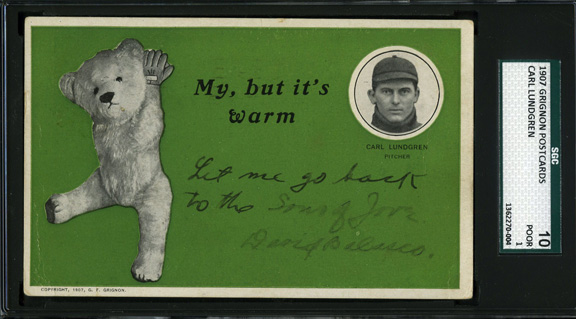 My, but it's
warm
CARL LUNDGREN
PITCHER
Let me go back
to the Sons of
David
COPYRIGHT, 1907, G. F. GRIGNON.
SGC
1907 GRIGNON POSTCARDS
CARL LUNDGREN
10
POOR
1
1362270-004